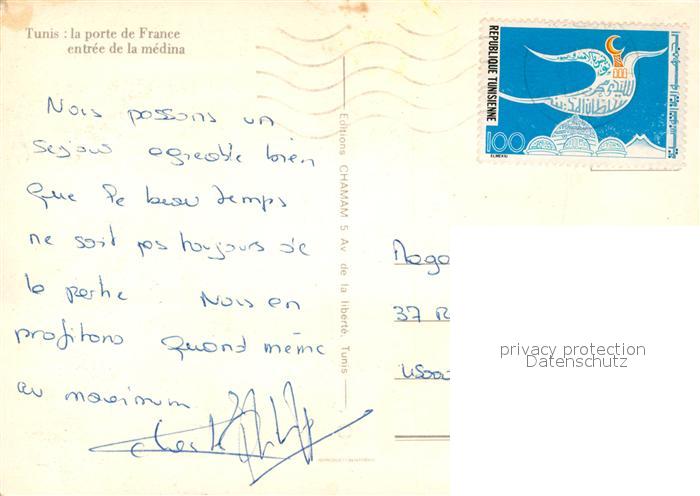 Tunis : la porte de France
entrée de la médina
Nous passons un
sejour agreable bien
que le beau temps
ne soit pas toujours de
la partie Nous en
profitons quand même
au maximum
Editions CHAMAM 5 Av de la liberté. Tunis
REPUBLIQUE TUNISIENNE
100
ELMEKKI
Maga
37 R
privacy protection
Datenschutz